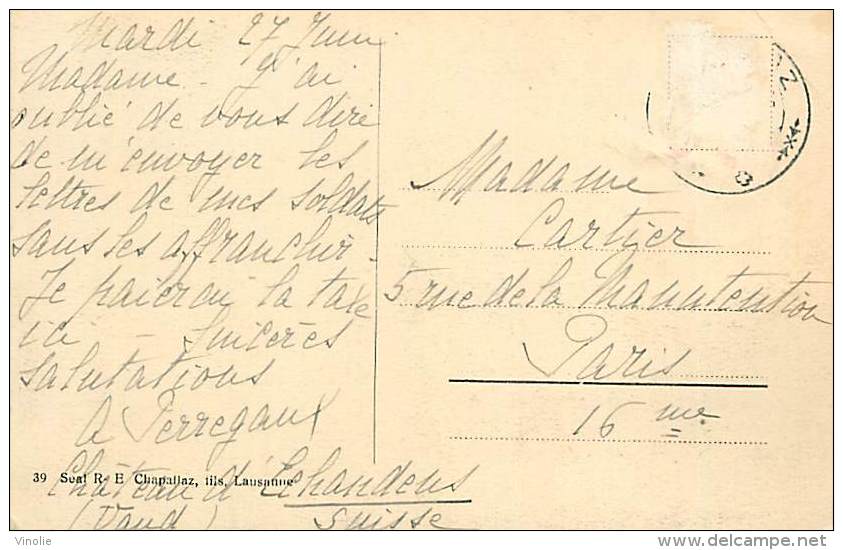 Mardi 27 Juin
Madame - J'ai
oublié de vous dire
de m'envoyer les
lettres de mes soldats
sans les affranchir -
Je paierai la taxe
ici - Sincères
salutations
A Perregaux
Château d'Echandens
(Vaud) Suisse
39 Seal R. E. Chapallaz, fils, Lausanne
Madame
Cartier
5 rue de la Manutention
Paris
16 me
Vinolie
delcampe.net